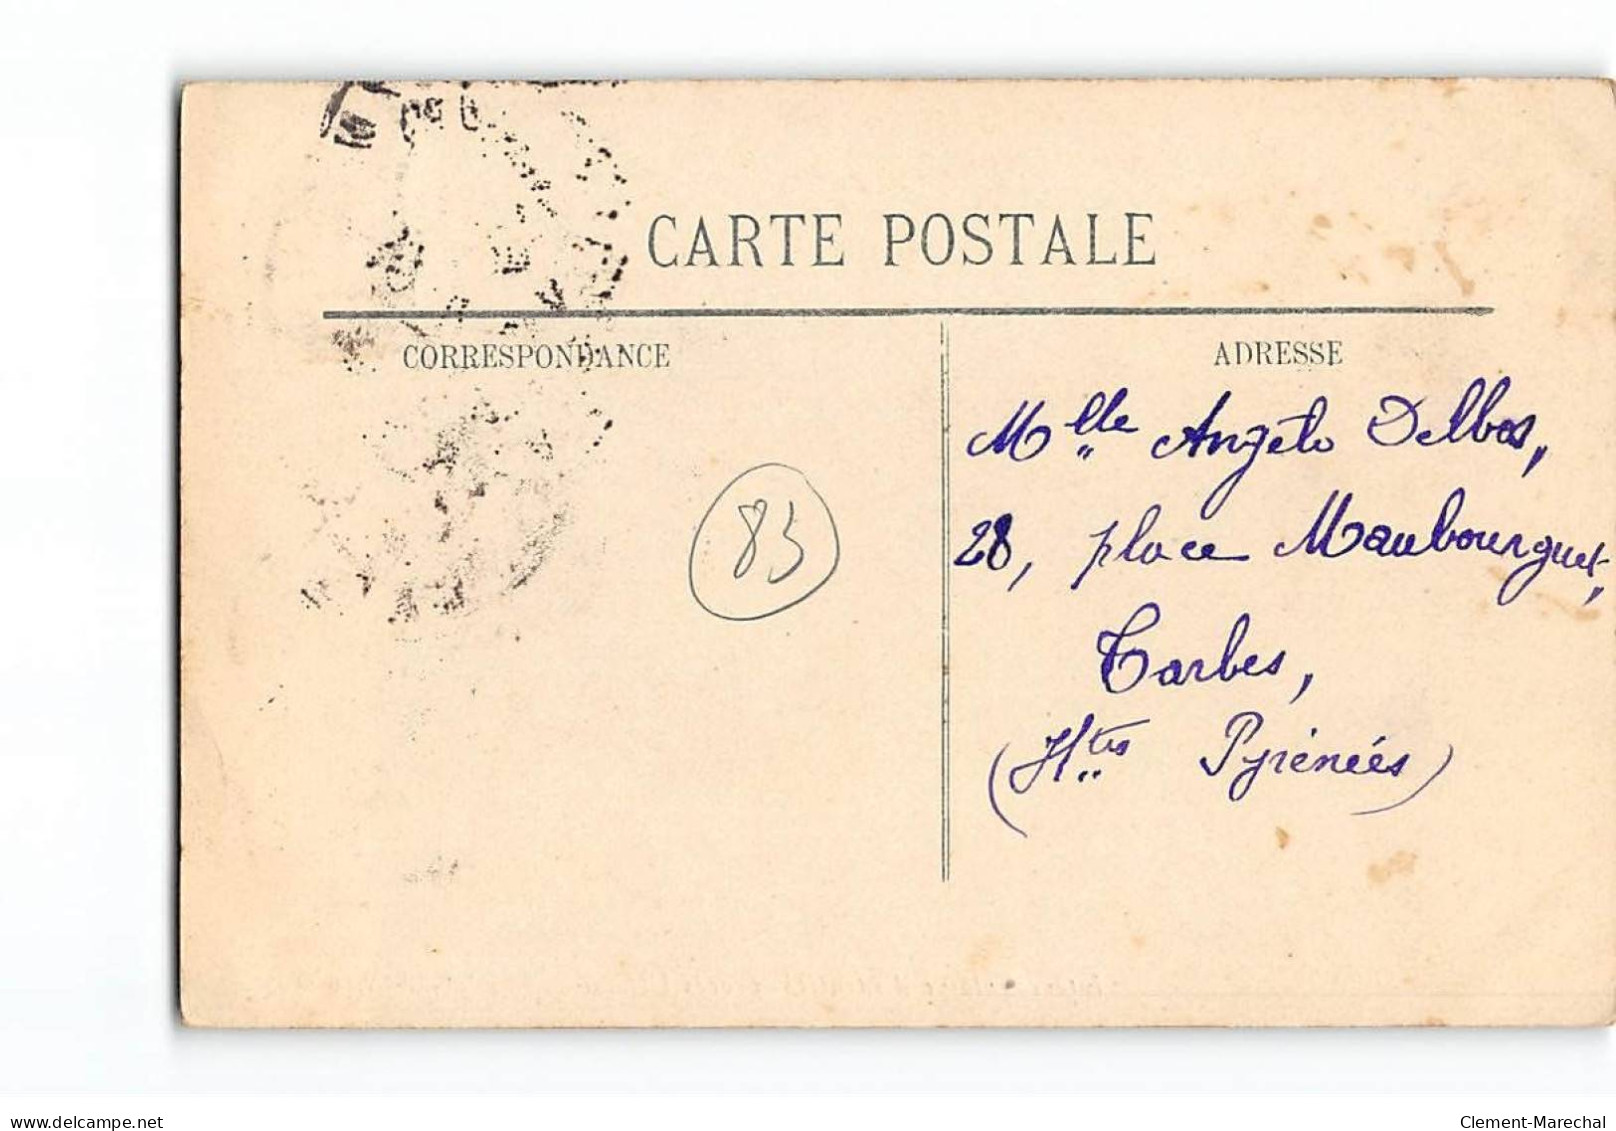 CARTE POSTALE
CORRESPONDANCE
ADRESSE
Mlle Angèle Delbos,
28, place Maubourguet,
Tarbes,
(Htes Pyrénées)
83
www.delcampe.net
Clement-Marechal